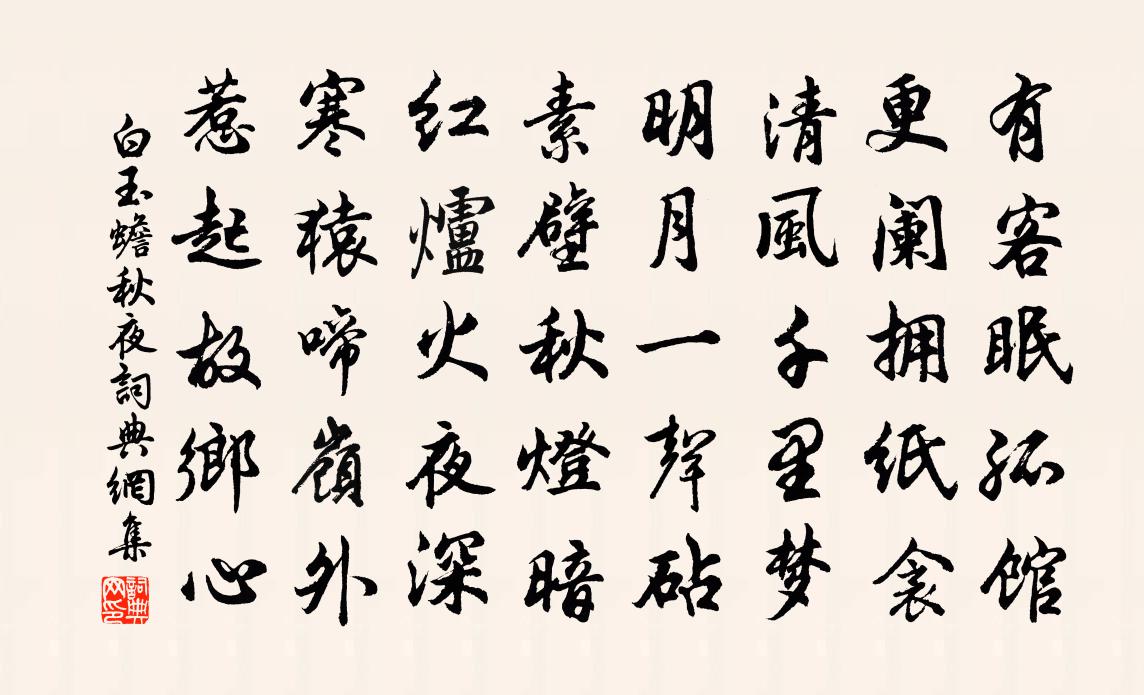 有客眠孤馆
更阑拥纸衾
清風千里梦
明月一聲砧
素壁秋燈暗
红爐火夜深
寒猿啼嶺外
惹起故鄉心
白玉蟾秋夜詞典網集
詞典网印